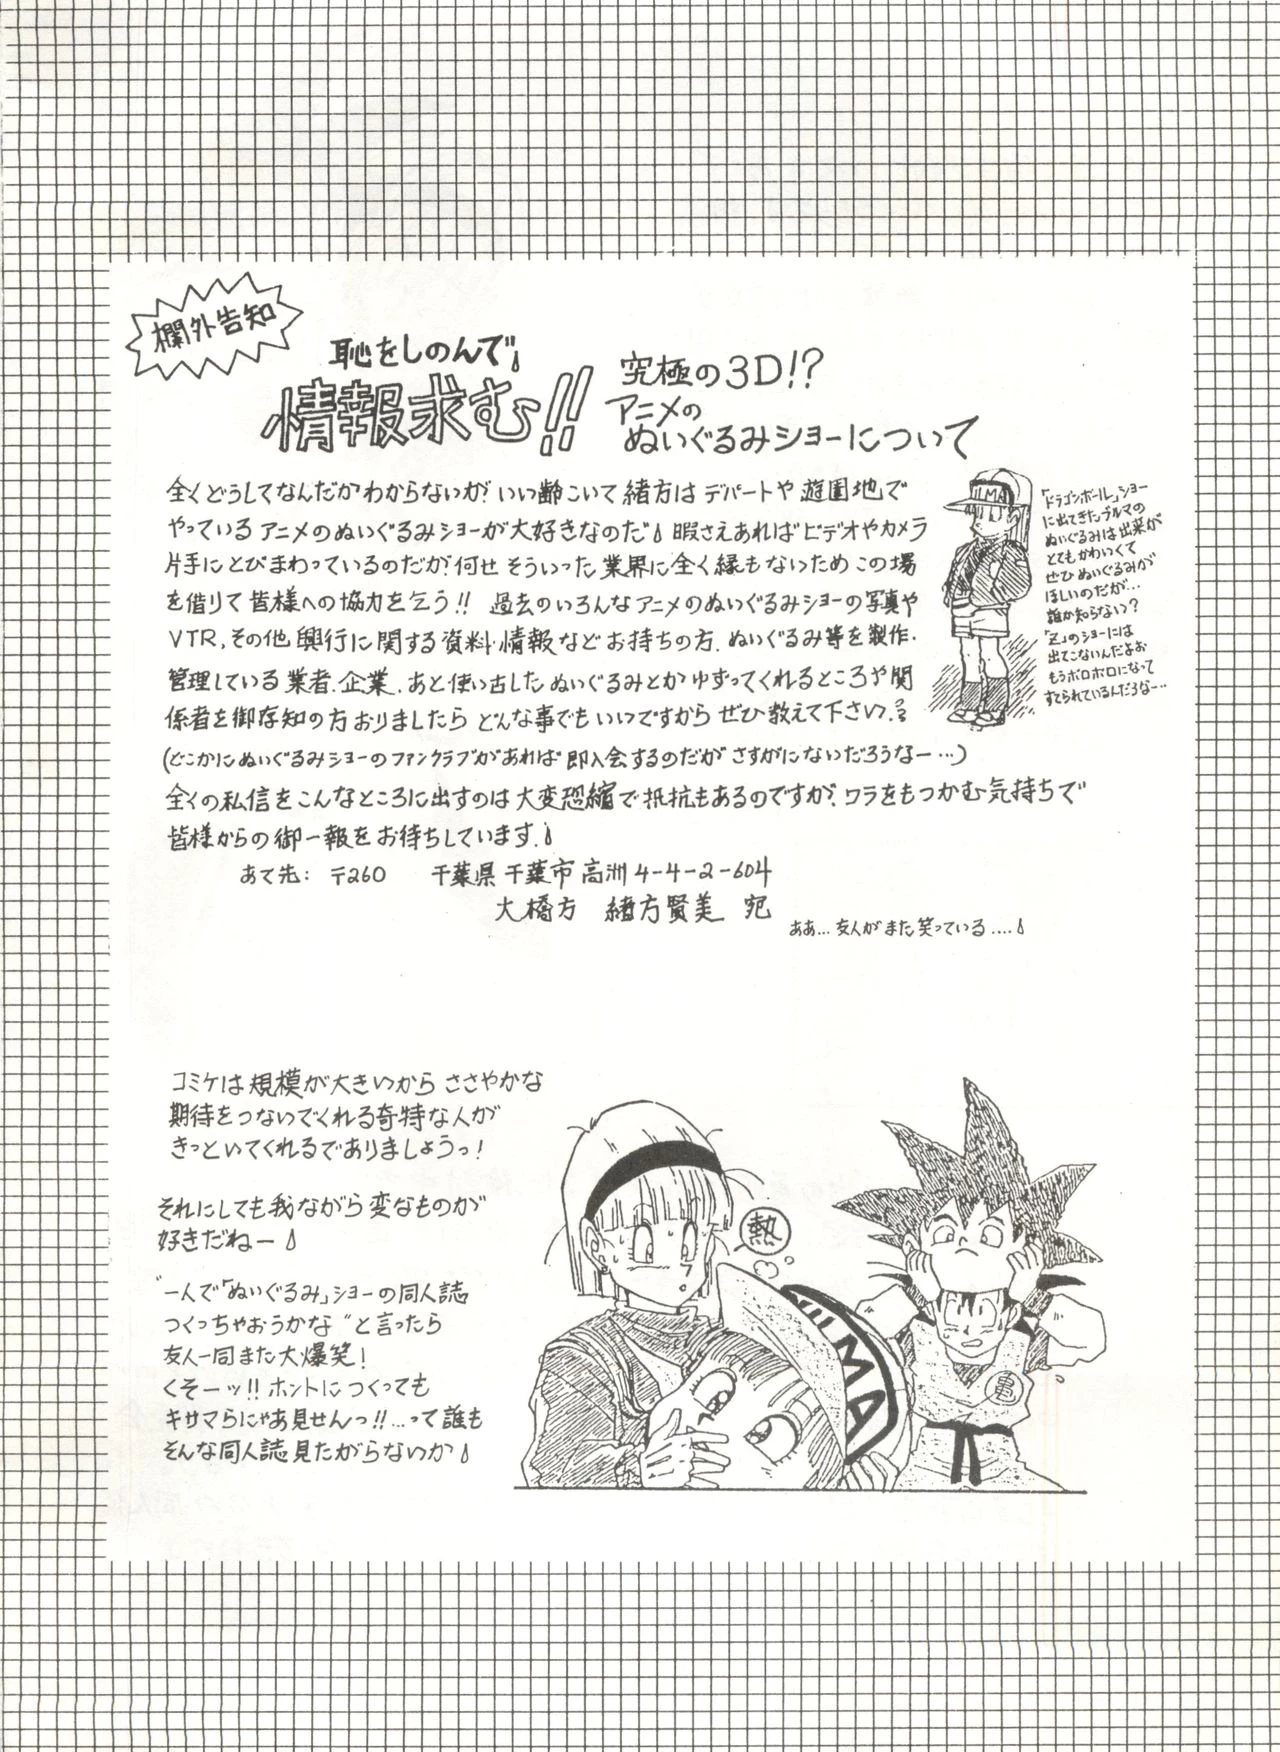 欄外告知
恥をしのんで
情報求む!!
究極の3D!?
アニメの
ぬいぐるみショーについて
全くどうしてなんだかわからないが、いい齢こいて緒方はデパートや遊園地で
やっているアニメのぬいぐるみショーが大好きなのだ 暇さえあればビデオやカメラ
片手にとびまわっているのだが、何せそういった業界に全く縁もないためこの場
を借りて皆様への協力を乞う!! 過去のいろんなアニメのぬいぐるみショーの写真や
VTR、その他興行に関する資料・情報などお持ちの方、ぬいぐるみ等を製作・
管理している業者、企業、あと使い古したぬいぐるみとかゆずってくれるところや関
係者を御存知の方おりましたらどんな事でもいいですからぜひ教えて下さい。
(どこかにぬいぐるみショーのファンクラブがあれば即入会するのだがさすがにないだろうなー…)
全くの私信をこんなところに出すのは大変恐縮で抵抗もあるのですが、ワラをもつかむ気持ちで
皆様からの御一報をお待ちしています。
あて先: 〒260 千葉県千葉市高洲4-4-2-604
大橋方 緒方賢美 宛
ああ…友人がまた笑っている....
ILMA
「ドラゴンボール」ショー
に出てきたブルマの
ぬいぐるみは出来が
とてもかわいくて
ぜひぬいぐるみが
ほしいのだが…
誰か知らない?
「Z」のショーには
出てこないんだよお
もうボロボロになって
すてられているんだろなー…
コミケは規模が大きいからささやかな
期待をつないでくれる奇特な人が
きっといてくれるでありましょうっ!
それにしても我ながら変なものが
好きだねー
"一人で「ぬいぐるみ」ショーの同人誌
つくっちゃおうかな"と言ったら
友人一同また大爆笑!
くそーッ!!ホントにつくっても
キサマらにゃあ見せんっ!!…って誰も
そんな同人誌見たがらないか
熱
ILMA
亀